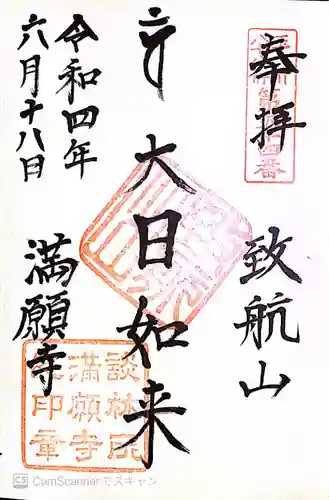 奉拝
致航山
大日如来
満願寺
令和四年
六月十八日
談林
満願寺
印章
CS CamScannerでスキャン